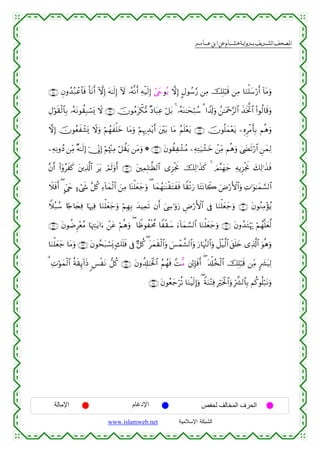 المصحف الشريف برواية هشام عن ابن عامر
وَمَآ أَرْسَلْنَا مِن قَبْلِكَ مِن رَّسُولٍ إِلَّا يُوحَىٰٓ إِلَيْهِ أَنَّهُۥ لَآ إِلَـٰهَ إِلَّآ أَنَا۠ فَٱعْبُدُونِ
وَقَالُوا۟ ٱتَّخَذَ ٱلرَّحْمَـٰنُ وَلَدًا ۗ سُبْحَـٰنَهُۥ ۚ بَلْ عِبَادٌ مُّكْرَمُونَ لَا يَسْبِقُونَهُۥ بِٱلْقَوْلِ
وَهُم بِأَمْرِهِۦ يَعْمَلُونَ يَعْلَمُ مَا بَيْنَ أَيْدِيهِمْ وَمَا خَلْفَهُمْ وَلَا يَشْفَعُونَ إِلَّا
لِمَنِ ٱرْتَضَىٰ وَهُم مِّنْ خَشْيَتِهِۦ مُشْفِقُونَ ۞ وَمَن يَقُلْ مِنْهُمْ إِنِّىٓ إِلَـٰهٌ مِّن دُونِهِۦ
فَذَٰلِكَ نَجْزِيهِ جَهَنَّمَ ۚ كَذَٰلِكَ نَجْزِى ٱلظَّـٰلِمِينَ أَوَلَمْ يَرَ ٱلَّذِينَ كَفَرُوٓا۟ أَنَّ
ٱلسَّمَـٰوَٰتِ وَٱلْأَرْضَ كَانَتَا رَتْقًا فَفَتَقْنَـٰهُمَا ۖ وَجَعَلْنَا مِنَ ٱلْمَآءِ كُلَّ شَىْءٍ حَىٍّ ۖ أَفَلَا
يُؤْمِنُونَ وَجَعَلْنَا فِى ٱلْأَرْضِ رَوَٰسِىَ أَن تَمِيدَ بِهِمْ وَجَعَلْنَا فِيهَا فِجَاجًا سُبُلًا
لَّعَلَّهُمْ يَهْتَدُونَ وَجَعَلْنَا ٱلسَّمَآءَ سَقْفًا مَّحْفُوظًا ۖ وَهُمْ عَنْ ءَايَـٰتِهَا مُعْرِضُونَ
وَهُوَ ٱلَّذِى خَلَقَ ٱلَّيْلَ وَٱلنَّهَارَ وَٱلشَّمْسَ وَٱلْقَمَرَ ۖ كُلٌّ فِى فَلَكٍ يَسْبَحُونَ وَمَا جَعَلْنَا
لِبَشَرٍ مِّن قَبْلِكَ ٱلْخُلْدَ ۖ أَفَإِي۟ن مُّتَّ فَهُمُ ٱلْخَـٰلِدُونَ كُلُّ نَفْسٍ ذَآئِقَةُ ٱلْمَوْتِ ۗ
وَنَبْلُوكُم بِٱلشَّرِّ وَٱلْخَيْرِ فِتْنَةً ۖ وَإِلَيْنَا تُرْجَعُونَ
الحرف المخالف لحفص الإدغام الإمالة
الشبكة الإسلامية www.islamweb.net